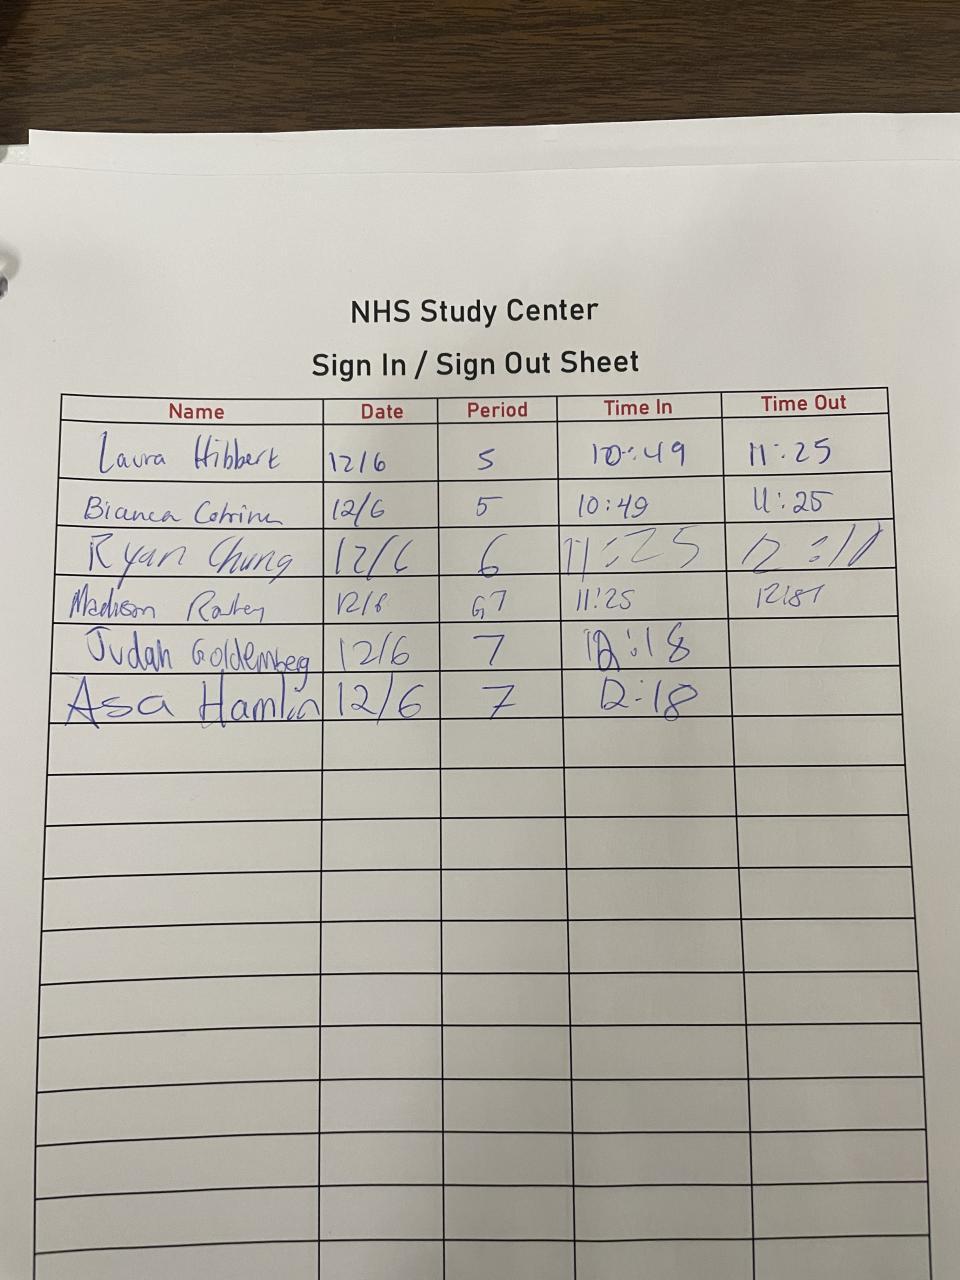 NHS Study Center
Sign In / Sign Out Sheet
Name Date Period Time In Time Out
Laura Hibbert 12/6 5 10:49 11:25
Bianca 12/6 5 10:49 11:25
Ryan Chung 12/6 6 11:25 12:11
Madison 12/6 67 11:25
Judah Goldemberg 12/6 7 12:18
Asa Hamlin 12/6 7 12:18